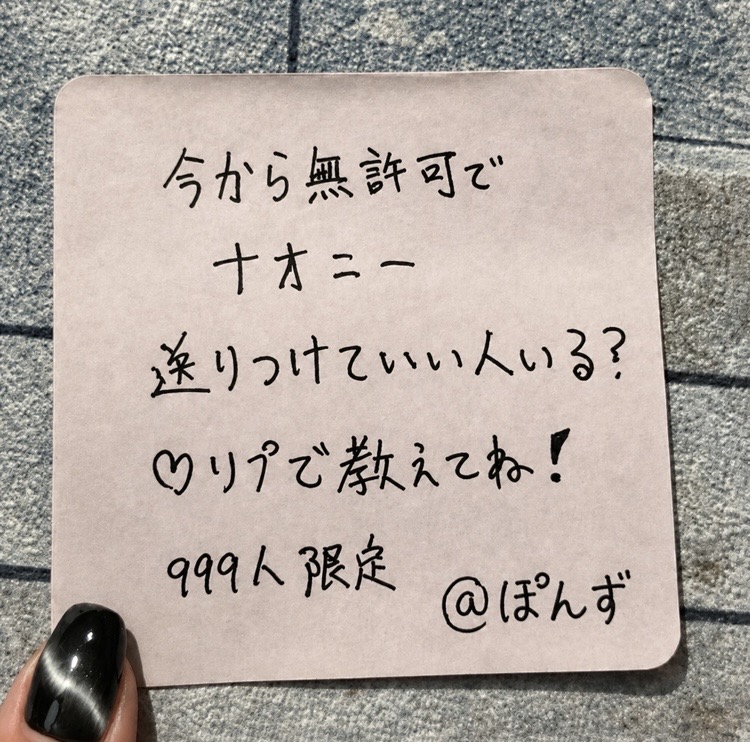 今から無許可で
ナオニー
送りつけていい人いる?
♡リプで教えてね!
999人限定
@ぽんず